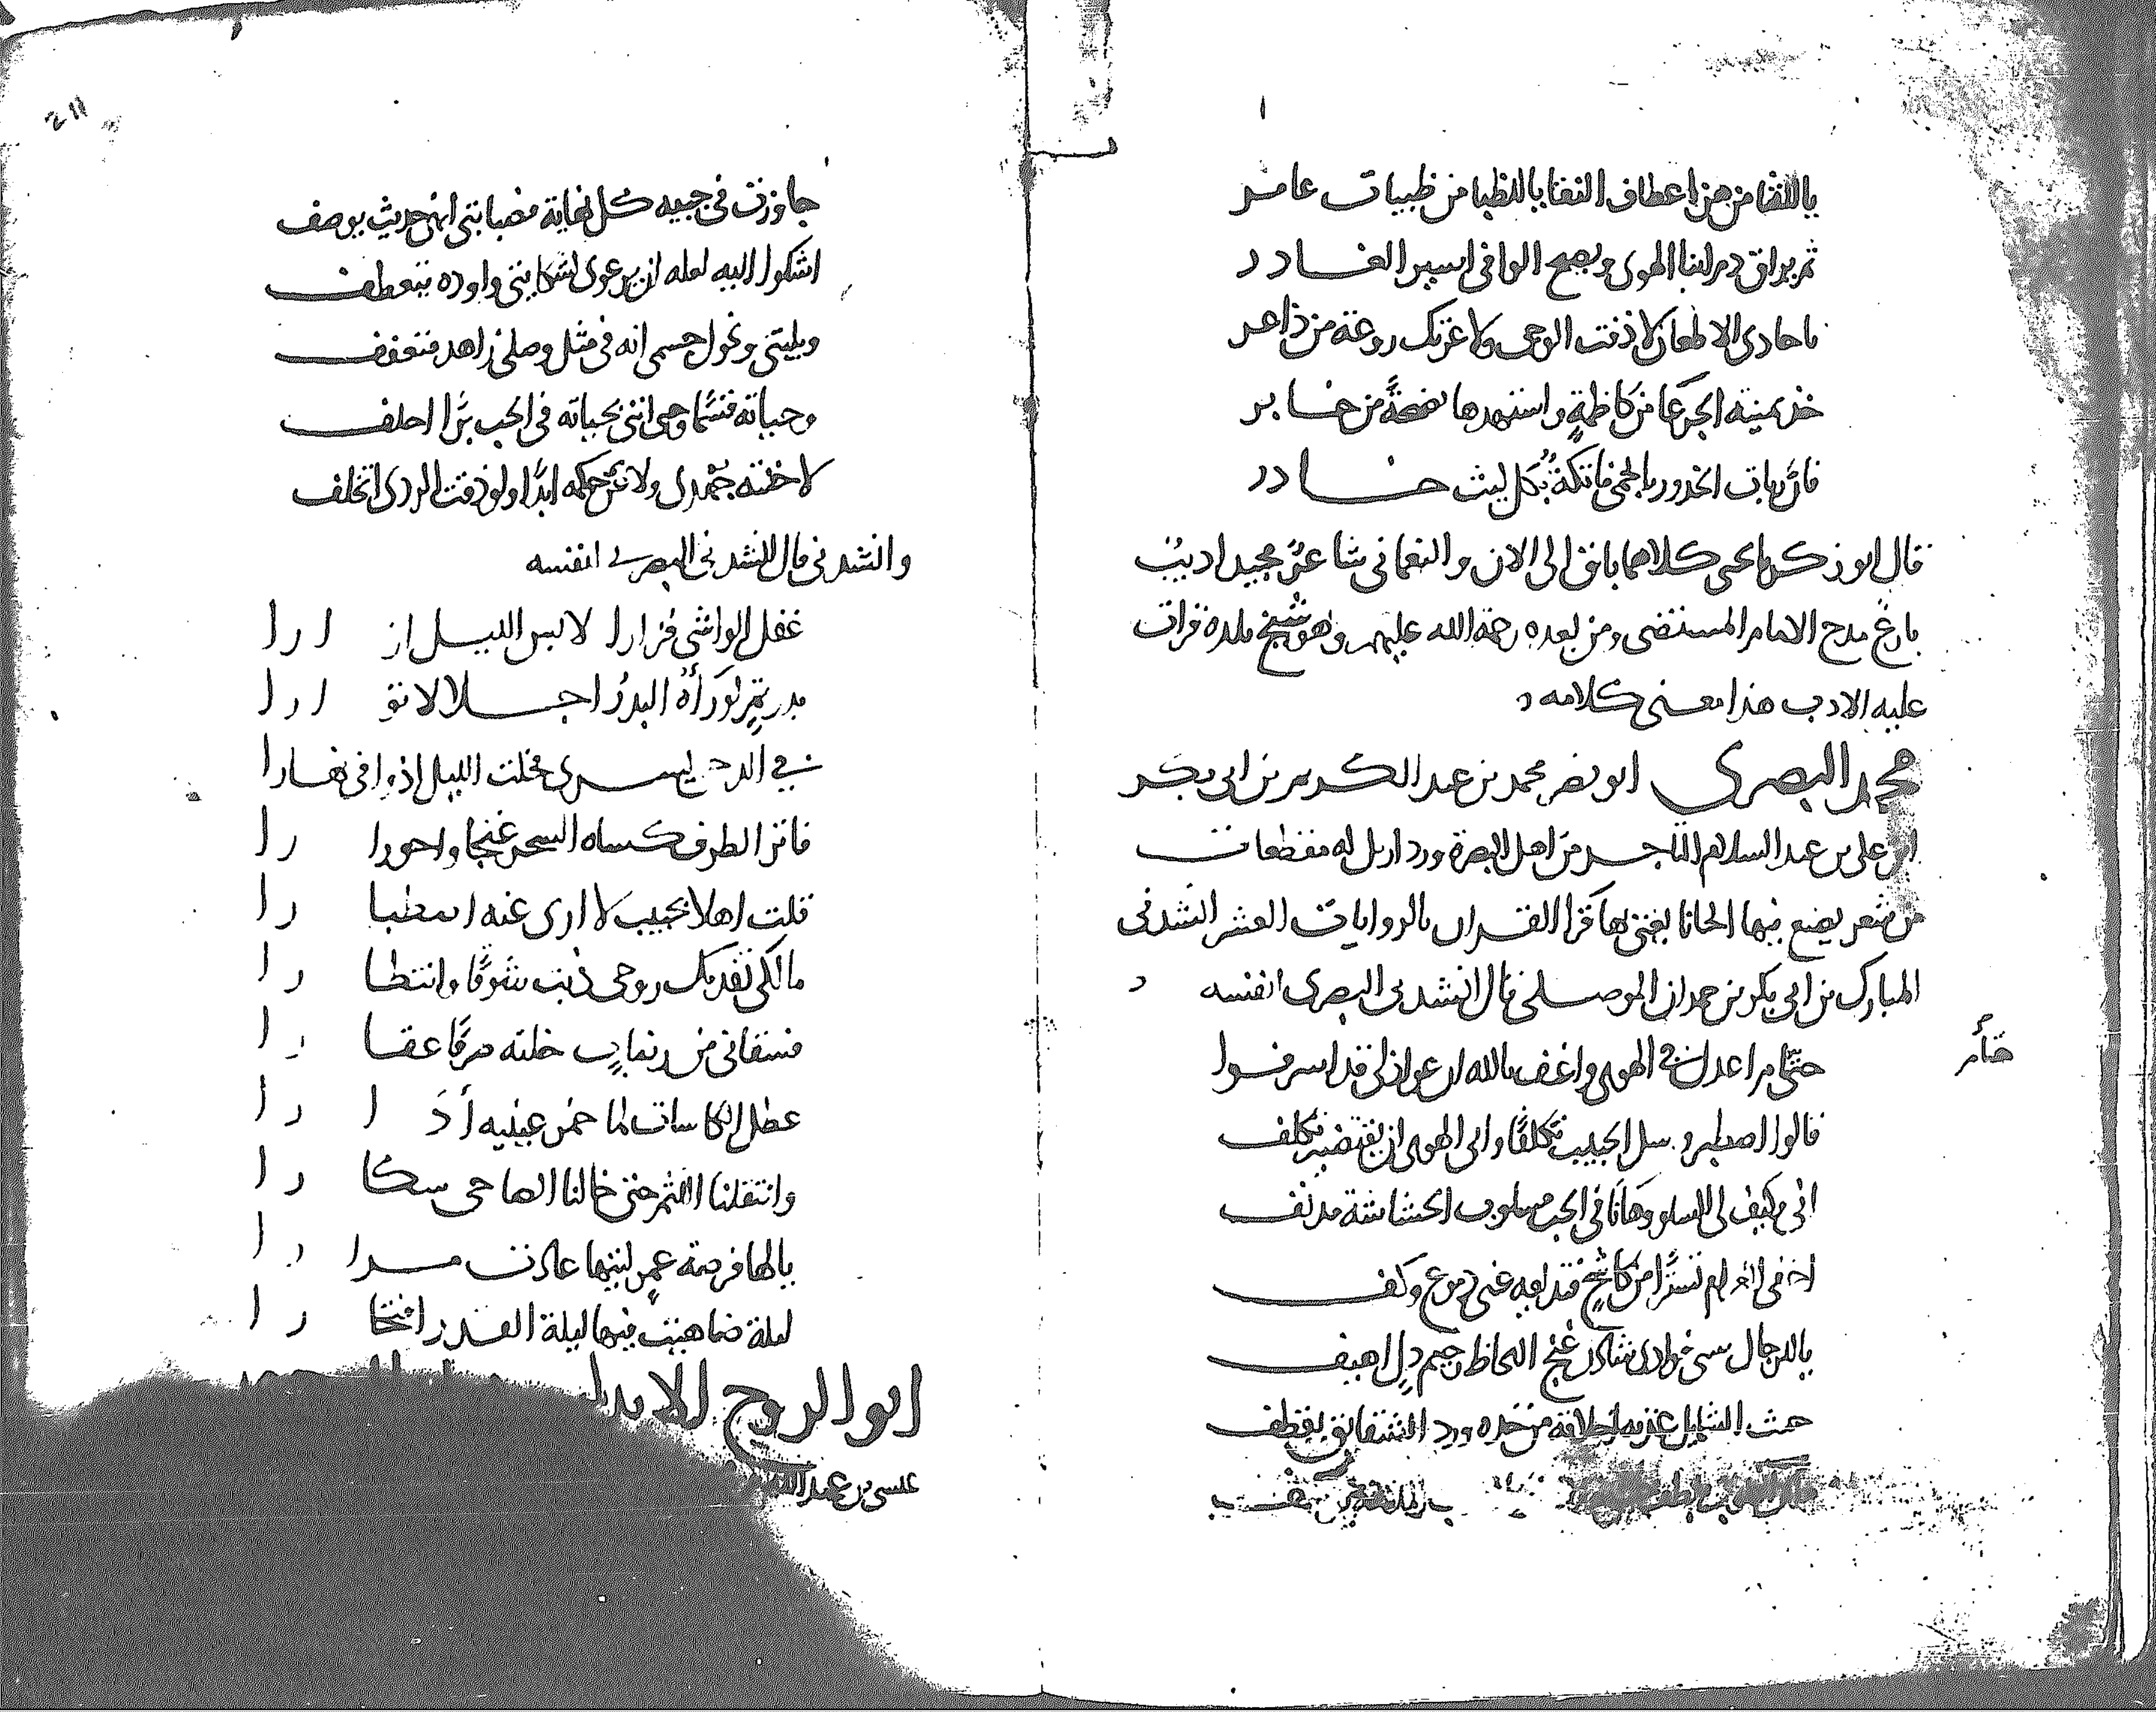 باللنقا من هز اعطاف النقا باللظبا من ظبيات عامر
ثم يراق دم لنا الهوى ويصبح الوافي اسير الغادر
يا حادي الاظعان لا ذقت الوجى ولا عرتك روعة من ذاعر
خذ يمينة الجرعا من كاظمة واستهدها نفحة من حاجر
فان ربات الخدور بالحمى فاتكة بكل ليث خادر
قال ابو زكريا يحيى كلاهما باق الى الان والنعماني شاعر مجيد اديب
بارع مدح الامام المستضي ومن بعده رحمة الله عليهم وهو شيخ بلده قرات
عليه الادب هذا معنى كلامه
محمد البصري ابو نصر محمد بن عبد الكريم بن ابي بكر
ابن علي بن عبد السلام التاجر من اهل البصرة ورد اربل له مقطعات
من شعر يضع فيها الحانا يغني بها قرا القران بالروايات العشر انشدني
المبارك بن ابي بكر بن حمدان الموصلي قال انشدني البصري لنفسه
حتام اعدل في الهوى واعنف بالله ان عواذلي قد اسرفوا
قالوا اصطبر وسل الحبيب تكلفا وابى الهوى ان يقتضيه تكلف
انى وكيف لي السلو وها انا في الحب مسلوب الحشاشة مدنف
اخفي الغرام تسترا من كاشح فتذيعه عني دموع وكف
يا للرجال سبى فوادي شادن غنج اللحاظ رخيم دل اهيف
خنث الشمايل من خده ورد الشقائق يقطف
جاوزت في حبيه كل نهاية فصبابتي ابهى حديث يوصف
اشكوا اليه لعله ان يرعوي لشكايتي واوده يتعطف
وبليتي ونحول جسمي انه في مثل وصلي زاهد متعفف
وحياته قسما وحى انني بحياته في الحب برا احلف
لا خنته جهدي ولا عن حكمه ابدا ولو ذقت الردى اتخلف
وانشدني قال انشدني البصري لنفسه
غفل الواشي فزارا لابس الليل ازارا
بدر تم لو رأه البدر اجلالا توارا
في الدجى يسري فخلت الليل اذ وافى نهارا
فاتر الطرف كساه السحر غنجا واحورارا
قلت اهلا بحبيب لا ارى عنه اصطبارا
مالكي تفديك روحي ذبت شوقا وانتظارا
فسقاني من رضاب خلته صرفا عقارا
عطل الكاسات لما خمر عينيه أدارا
وانتقلنا اللثم حتى خالنا الصاحي سكارا
يالها فرصة عمر ليتها عادت مرارا
ليلة ضاهيت فيها ليلة القدر افتخارا
ابو الروح
عيسى بن عبد الله